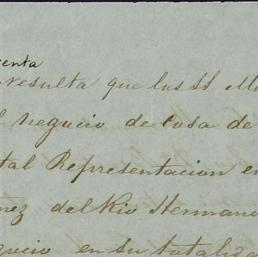 enta
resulta que los SS M
negocio de casa de
tal Representacion en
ez del Rio Herman
gocio en su totalida